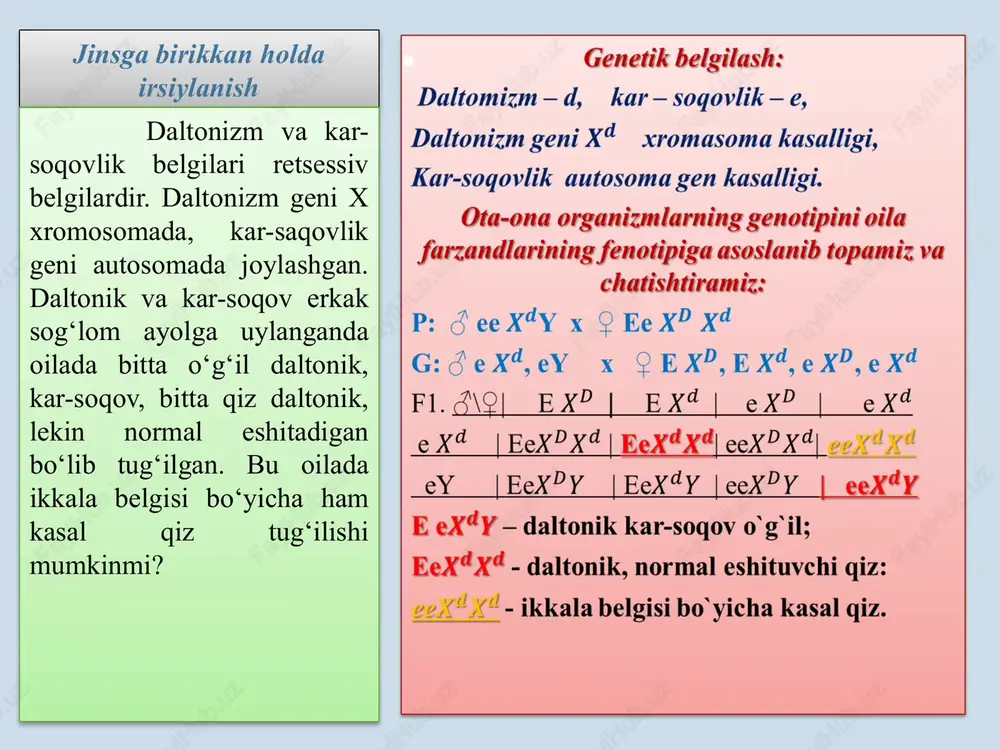 Jinsga birikkan holda
irsiylanish
Daltonizm va kar-
soqovlik belgilari retsessiv
belgilardir. Daltonizm geni X
xromosomada, kar-saqovlik
geni autosomada joylashgan.
Daltonik va kar-soqov erkak
sog‘lom ayolga uylanganda
oilada bitta o‘g‘il daltonik,
kar-soqov, bitta qiz daltonik,
lekin normal eshitadigan
bo‘lib tug‘ilgan. Bu oilada
ikkala belgisi bo‘yicha ham
kasal qiz tug‘ilishi
mumkinmi?
Genetik belgilash:
Daltomizm – d, kar – soqovlik – e,
Daltonizm geni X^d xromasoma kasalligi,
Kar-soqovlik autosoma gen kasalligi.
Ota-ona organizmlarning genotipini oila
farzandlarining fenotipiga asoslanib topamiz va
chatishtiramiz:
P: ♂ ee X^dY x ♀ Ee X^D X^d
G: ♂ e X^d, eY x ♀ E X^D, E X^d, e X^D, e X^d
F1. ♂\♀| E X^D | E X^d | e X^D | e X^d
e X^d | EeX^DX^d | EeX^dX^d| eeX^DX^d| eeX^dX^d
eY | EeX^DY | EeX^dY | eeX^DY | eeX^dY
E eX^dY – daltonik kar-soqov o`g`il;
EeX^dX^d - daltonik, normal eshituvchi qiz:
eeX^dX^d - ikkala belgisi bo`yicha kasal qiz.
FaylHub.uz